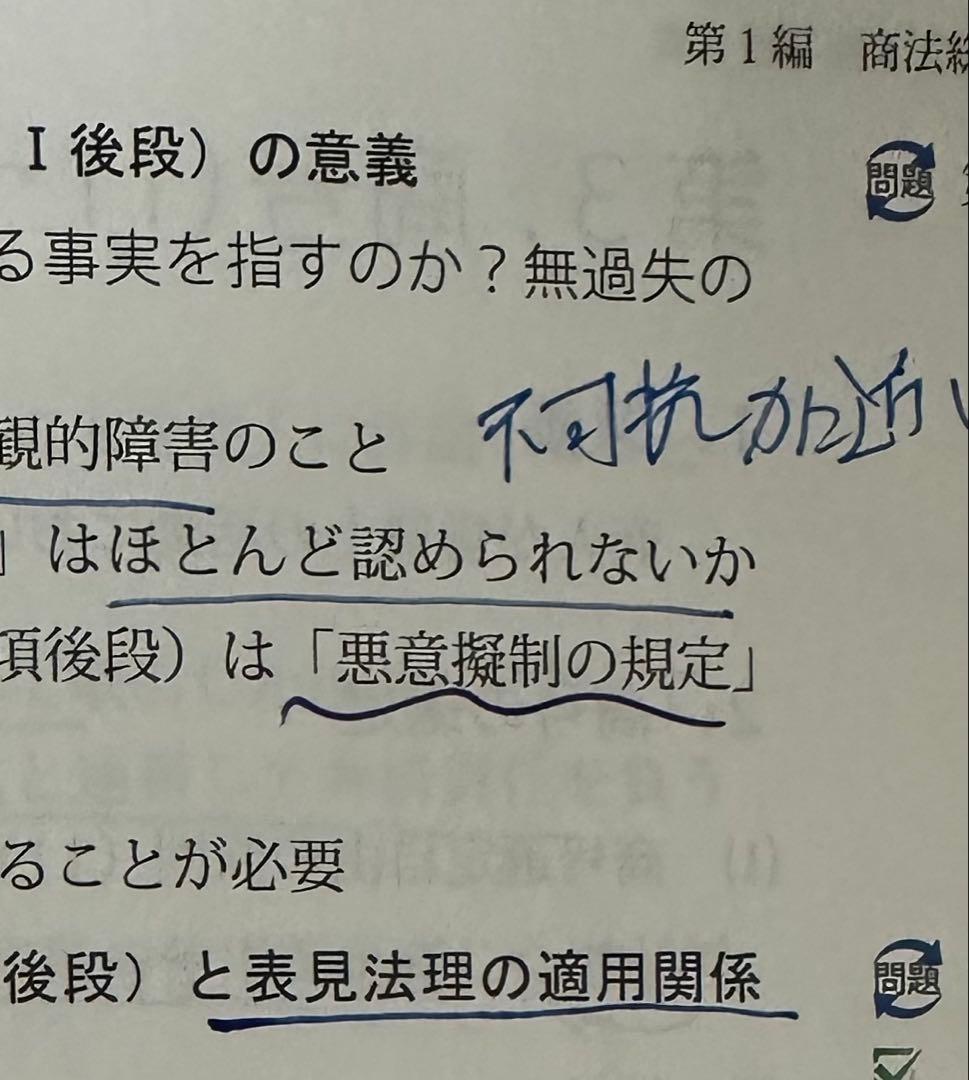 第1編 商法総
Ⅰ後段）の意義
問題
る事実を指すのか？無過失の
不可抗力に近い
観的障害のこと
」はほとんど認められないか
項後段）は「悪意擬制の規定」
ることが必要
後段）と表見法理の適用関係
問題